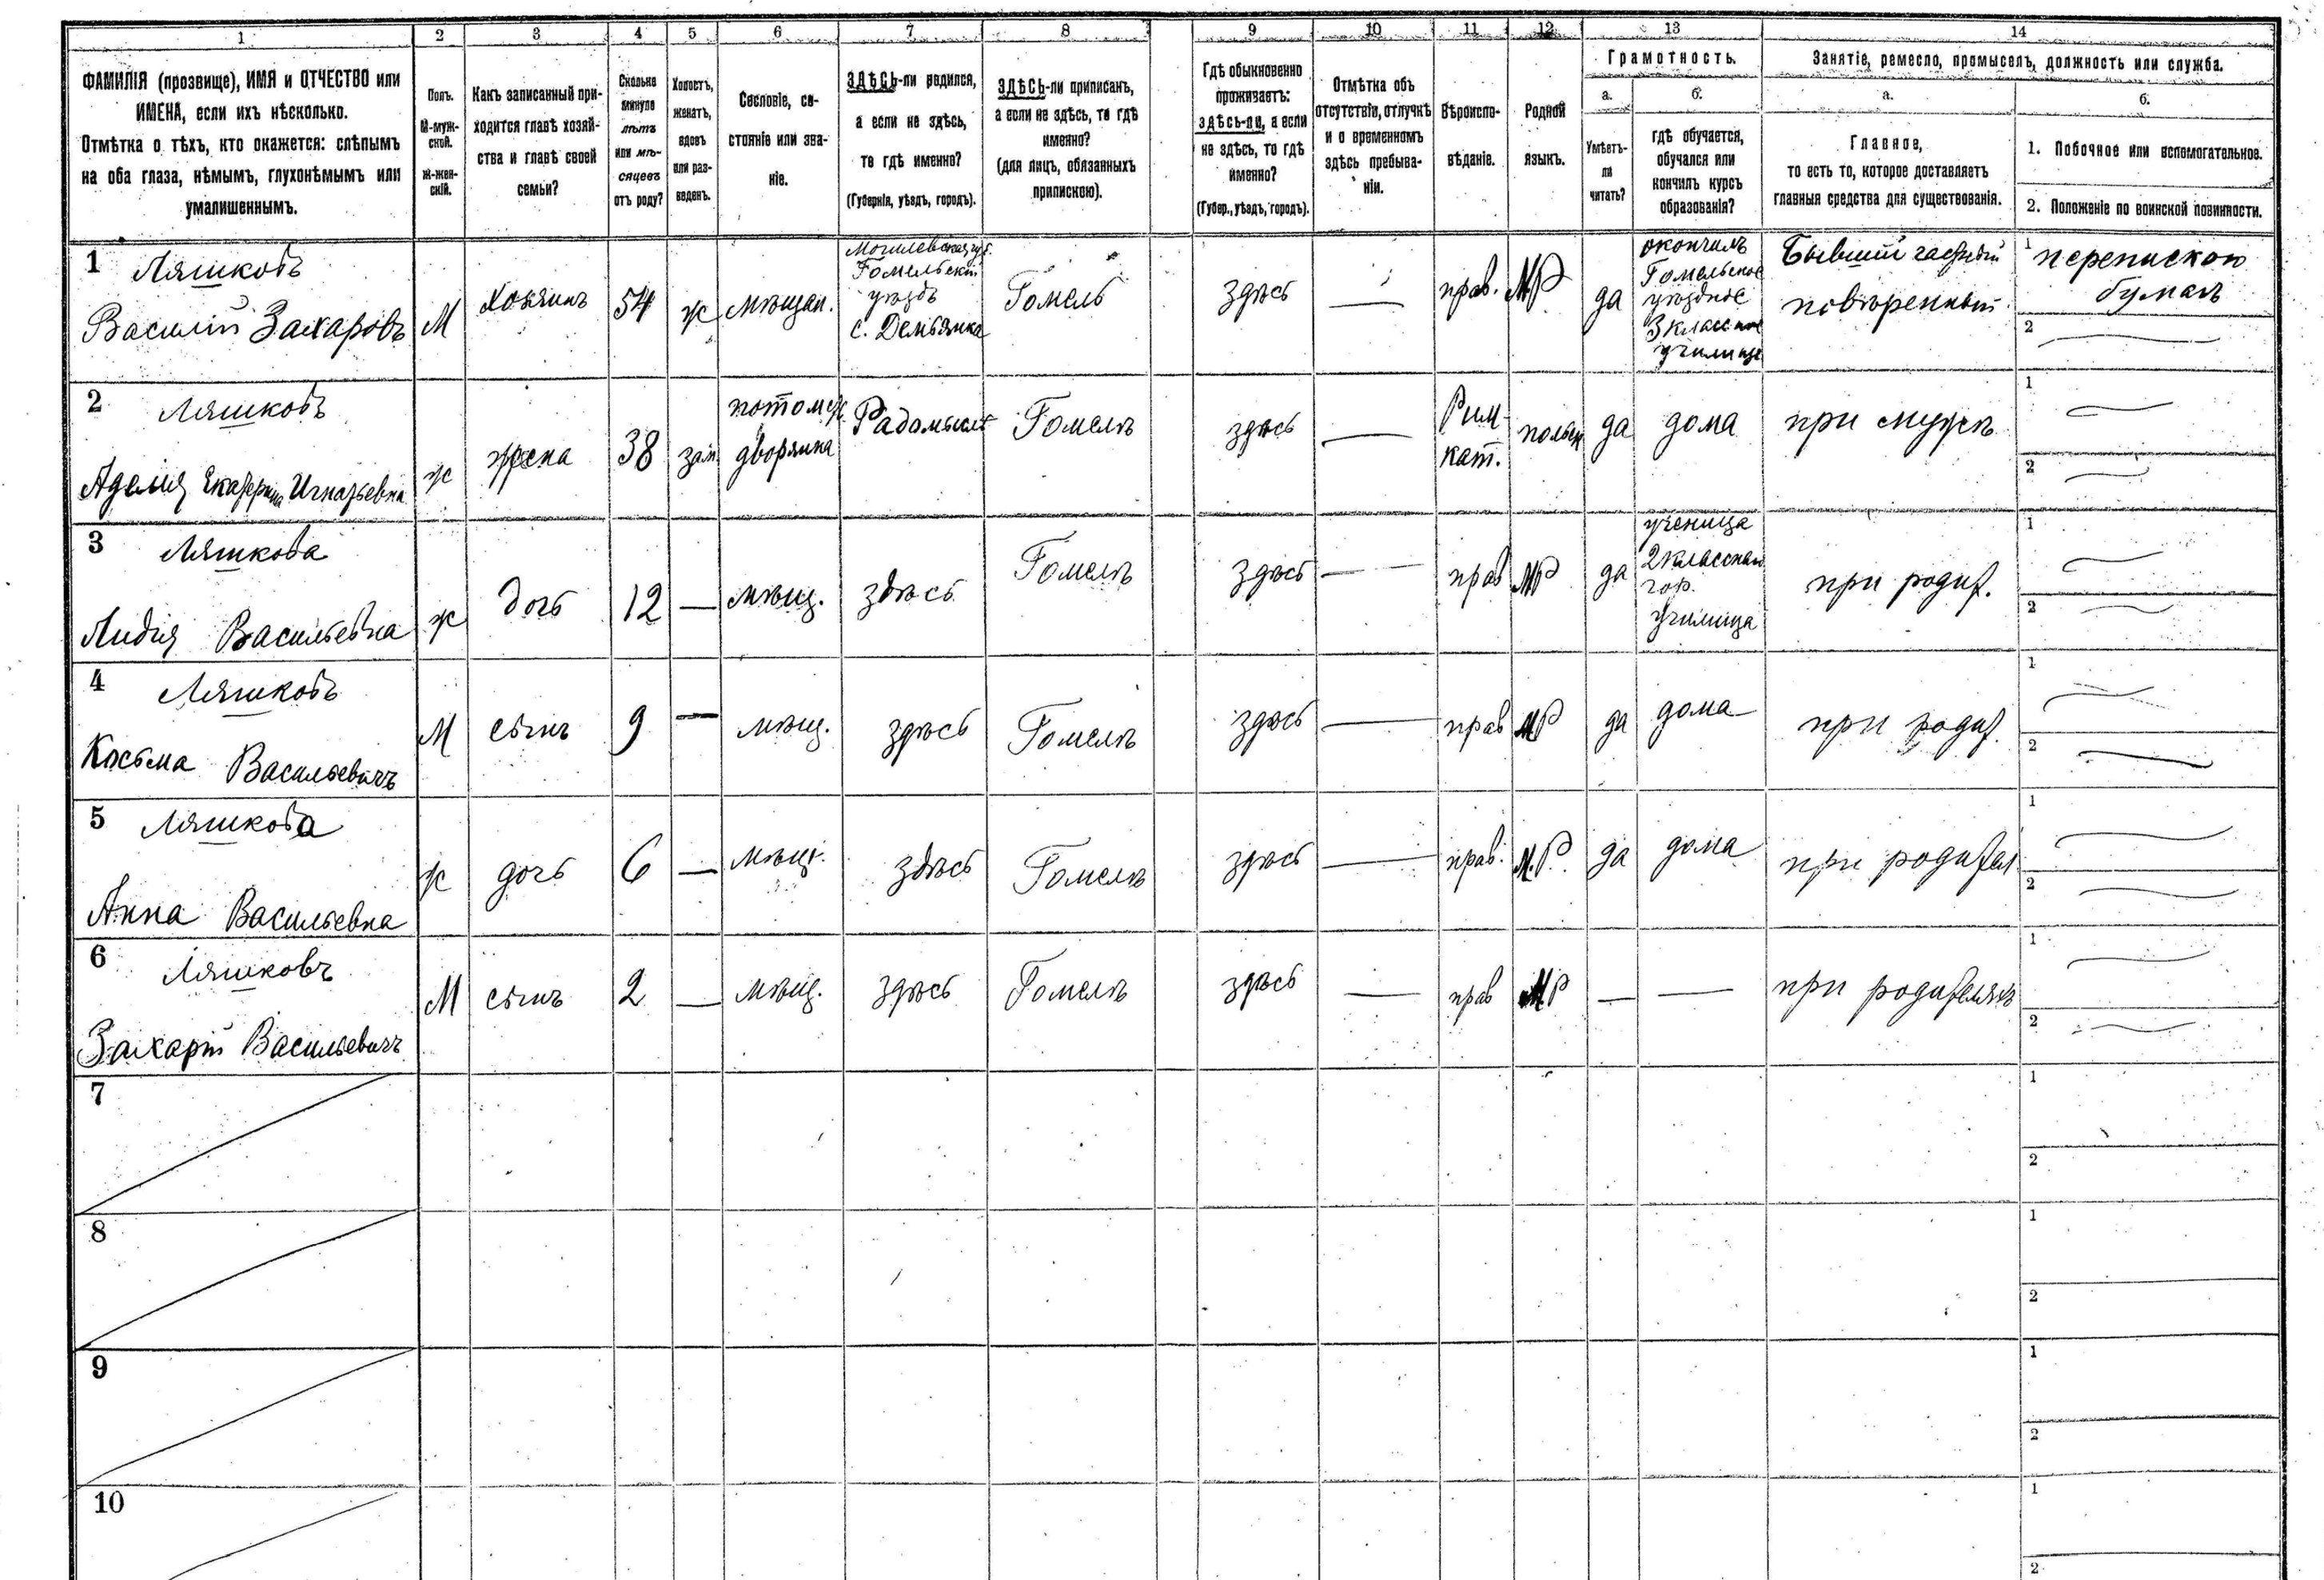 1 2 3 4 5 6 7 8 9 10 11 12 13 14
ФАМИЛІЯ (прозвище), ИМЯ и ОТЧЕСТВО или
ИМЕНА, если ихъ нѣсколько.
Отмѣтка о тѣхъ, кто окажется: слѣпымъ
на оба глаза, нѣмымъ, глухонѣмымъ или
умалишеннымъ.
Полъ.
М-муж-
ской.
Ж-жен-
скій.
Какъ записанный при-
ходится главѣ хозяй-
ства и главѣ своей
семьи?
Сколько
минуло
лѣтъ
или мѣ-
сяцевъ
отъ роду?
Холостъ,
женатъ,
вдовъ
или раз-
веденъ.
Сословіе, со-
стояніе или зва-
ніе.
ЗДѢСЬ-ли родился,
а если не здѣсь,
то гдѣ именно?
(Губернія, уѣздъ, городъ).
ЗДѢСЬ-ли приписанъ,
а если не здѣсь, то гдѣ
именно?
(для лицъ, обязанныхъ
припискою).
Гдѣ обыкновенно
проживаетъ:
здѣсь-ли, а если
не здѣсь, то гдѣ
именно?
(Губер., уѣздъ, городъ).
Отмѣтка объ
отсутствіи, отлучкѣ
и о временномъ
здѣсь пребыва-
ніи.
Вѣроиспо-
вѣданіе.
Родной
языкъ.
Грамотность.
а.
Умѣетъ-
ли
читать?
б.
гдѣ обучается,
обучался или
кончилъ курсъ
образованія?
Занятіе, ремесло, промыселъ, должность или служба.
а.
Главное,
то есть то, которое доставляетъ
главныя средства для существованія.
б.
1. Побочное или вспомогательное.
2. Положеніе по воинской повинности.
1 Ляшковъ
Василій Захаровъ
М
Хозяинъ
54
ж
мѣщан.
Могилевская губ.
Гомельскій
уѣздъ
с. Демьянка
Гомель
здѣсь
прав.
МР
да
окончилъ
Гомельское
уѣздное
3 классное
училище
Бывшій частный
повѣренный
1 перепискою
бумагъ
2
2 Ляшковъ
Аделія Екатерина Игнатьевна
ж
жена
38
зам
потомс
дворянка
Гомелѣ
здѣсь
Рим-
кат.
польск
да
дома
при мужѣ
1
2
3 Ляшкова
Лидія Васильевна
ж
дочь
12
—
мѣщ.
здѣсь
Гомелѣ
здѣсь
прав
МР
да
ученица
2 класснаго
гор.
училища
при родит.
1
2
4 Ляшковъ
Косьма Васильевичъ
М
сынъ
9
—
мѣщ.
здѣсь
Гомелѣ
здѣсь
прав
МР
да
дома
при родит.
1
2
5 Ляшкова
Анна Васильевна
ж
дочь
6
—
мѣщ.
здѣсь
Гомелѣ
здѣсь
прав.
М.Р.
да
дома
при родител
1
2
6 Ляшковъ
Захарій Васильевичъ
М
сынъ
2
—
мѣщ.
здѣсь
Гомелѣ
здѣсь
прав
МР
—
—
при родителяхъ
1
2
7
1
2
8
1
2
9
1
2
10
1
2